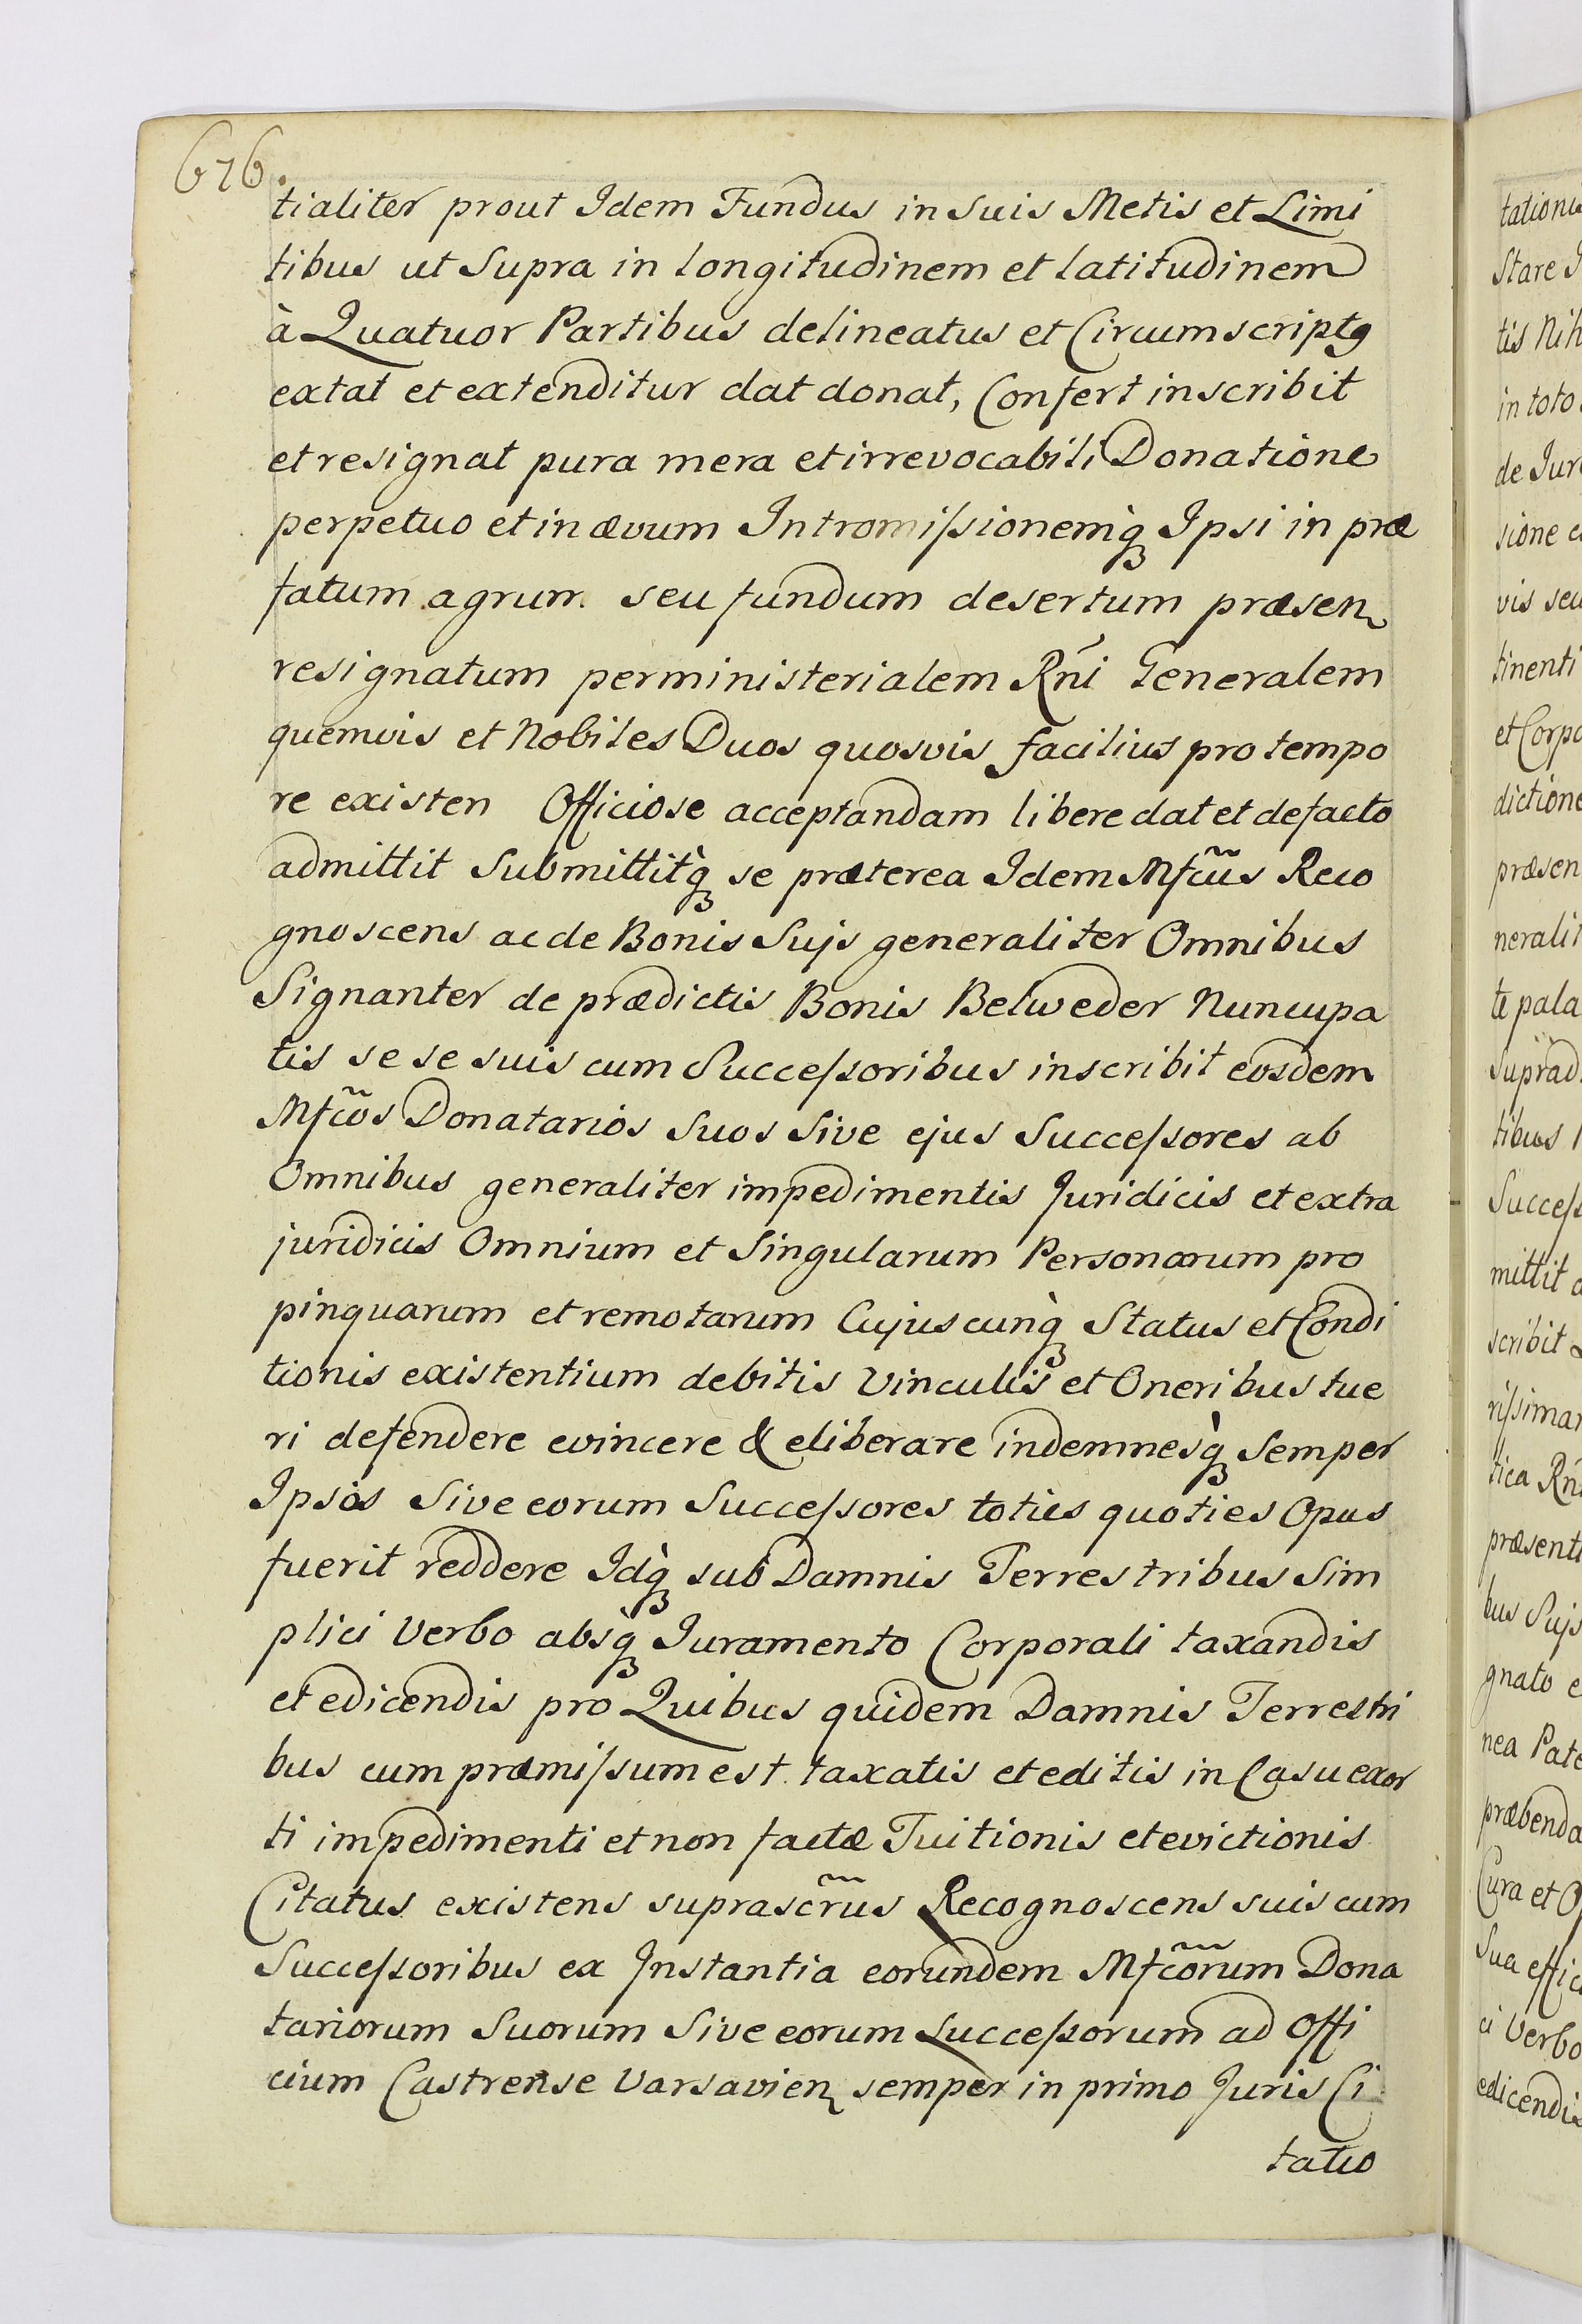 676.
tialiter prout Idem Fundus in suis Metis et Limi
tibus ut Supra in longitudinem et latitudinem
à Quatuor Partibus delineatus et Circumscriptꝰ
extat et extenditur dat donat, Confert inscribit
et resignat pura mera et irrevocabili Donatione
perpetuo et in ævum Intromiſsionemq̀ Ipsi in præ
fatum agrum seu fundum desertum præsen
resignatum per ministerialem Rńi Generalem
quemvis et Nobiles Duos quosvis facilius pro tempo
re existen Officiose acceptandam libere dat et defacto
admittit Submittitq̀ se præterea Idem Mfcũs Reco
gnoscens ac de Bonis Sujs generaliter Omnibus
Signanter de prædictis Bonis Belweder Nuncupa
tis se se suis cum Succeſsoribus inscribit eosdem
Mfcõs Donatarios Suos Sive ejus Succeſsores ab
Omnibus generaliter impedimentis Juridicis et extra
juridicis Omnium et Singularum Personarum pro
pinquarum et remotarum Cujuscunq̀ Status et Condi
tionis existentium debitis Vinculis et Oneribus tue
ri defendere evincere & eliberare indemnesq̀ Semper
Ipsos Sive eorum Succeſsores toties quoties Opus
fuerit reddere Idq̀ sub Damnis Terrestribus Sim
plici Verbo absq̀ Juramento Corporali taxandis
et edicendis pro Quibus quidem Damnis Terrestri
bus cum præmiſsum est taxatis et editis in Casu exor
ti impedimenti et non factæ Tuitionis et evictionis
Citatus existens suprascrũs Recognoscens suis cum
Succeſsoribus ex Instantia eorundem Mfcõrum Dona
tariorum Suorum Sive eorum Succeſsorum ad Offi
cium Castrense Varsavien semper in primo Juris Ci
tatio
tationis
Stare J
tis Nih
in toto
de Jur
sione e
vis seu
tinenti
et Corpo
dictione
præsen
neralit
te pala
Suprad
tibus
Succeſs
mittit a
scribit
riſsima
tica Rń
præsenti
bus Sujs
gnato e
nea Pate
præbenda
Cura et O
Sua effic
ci Verbo
edicendis